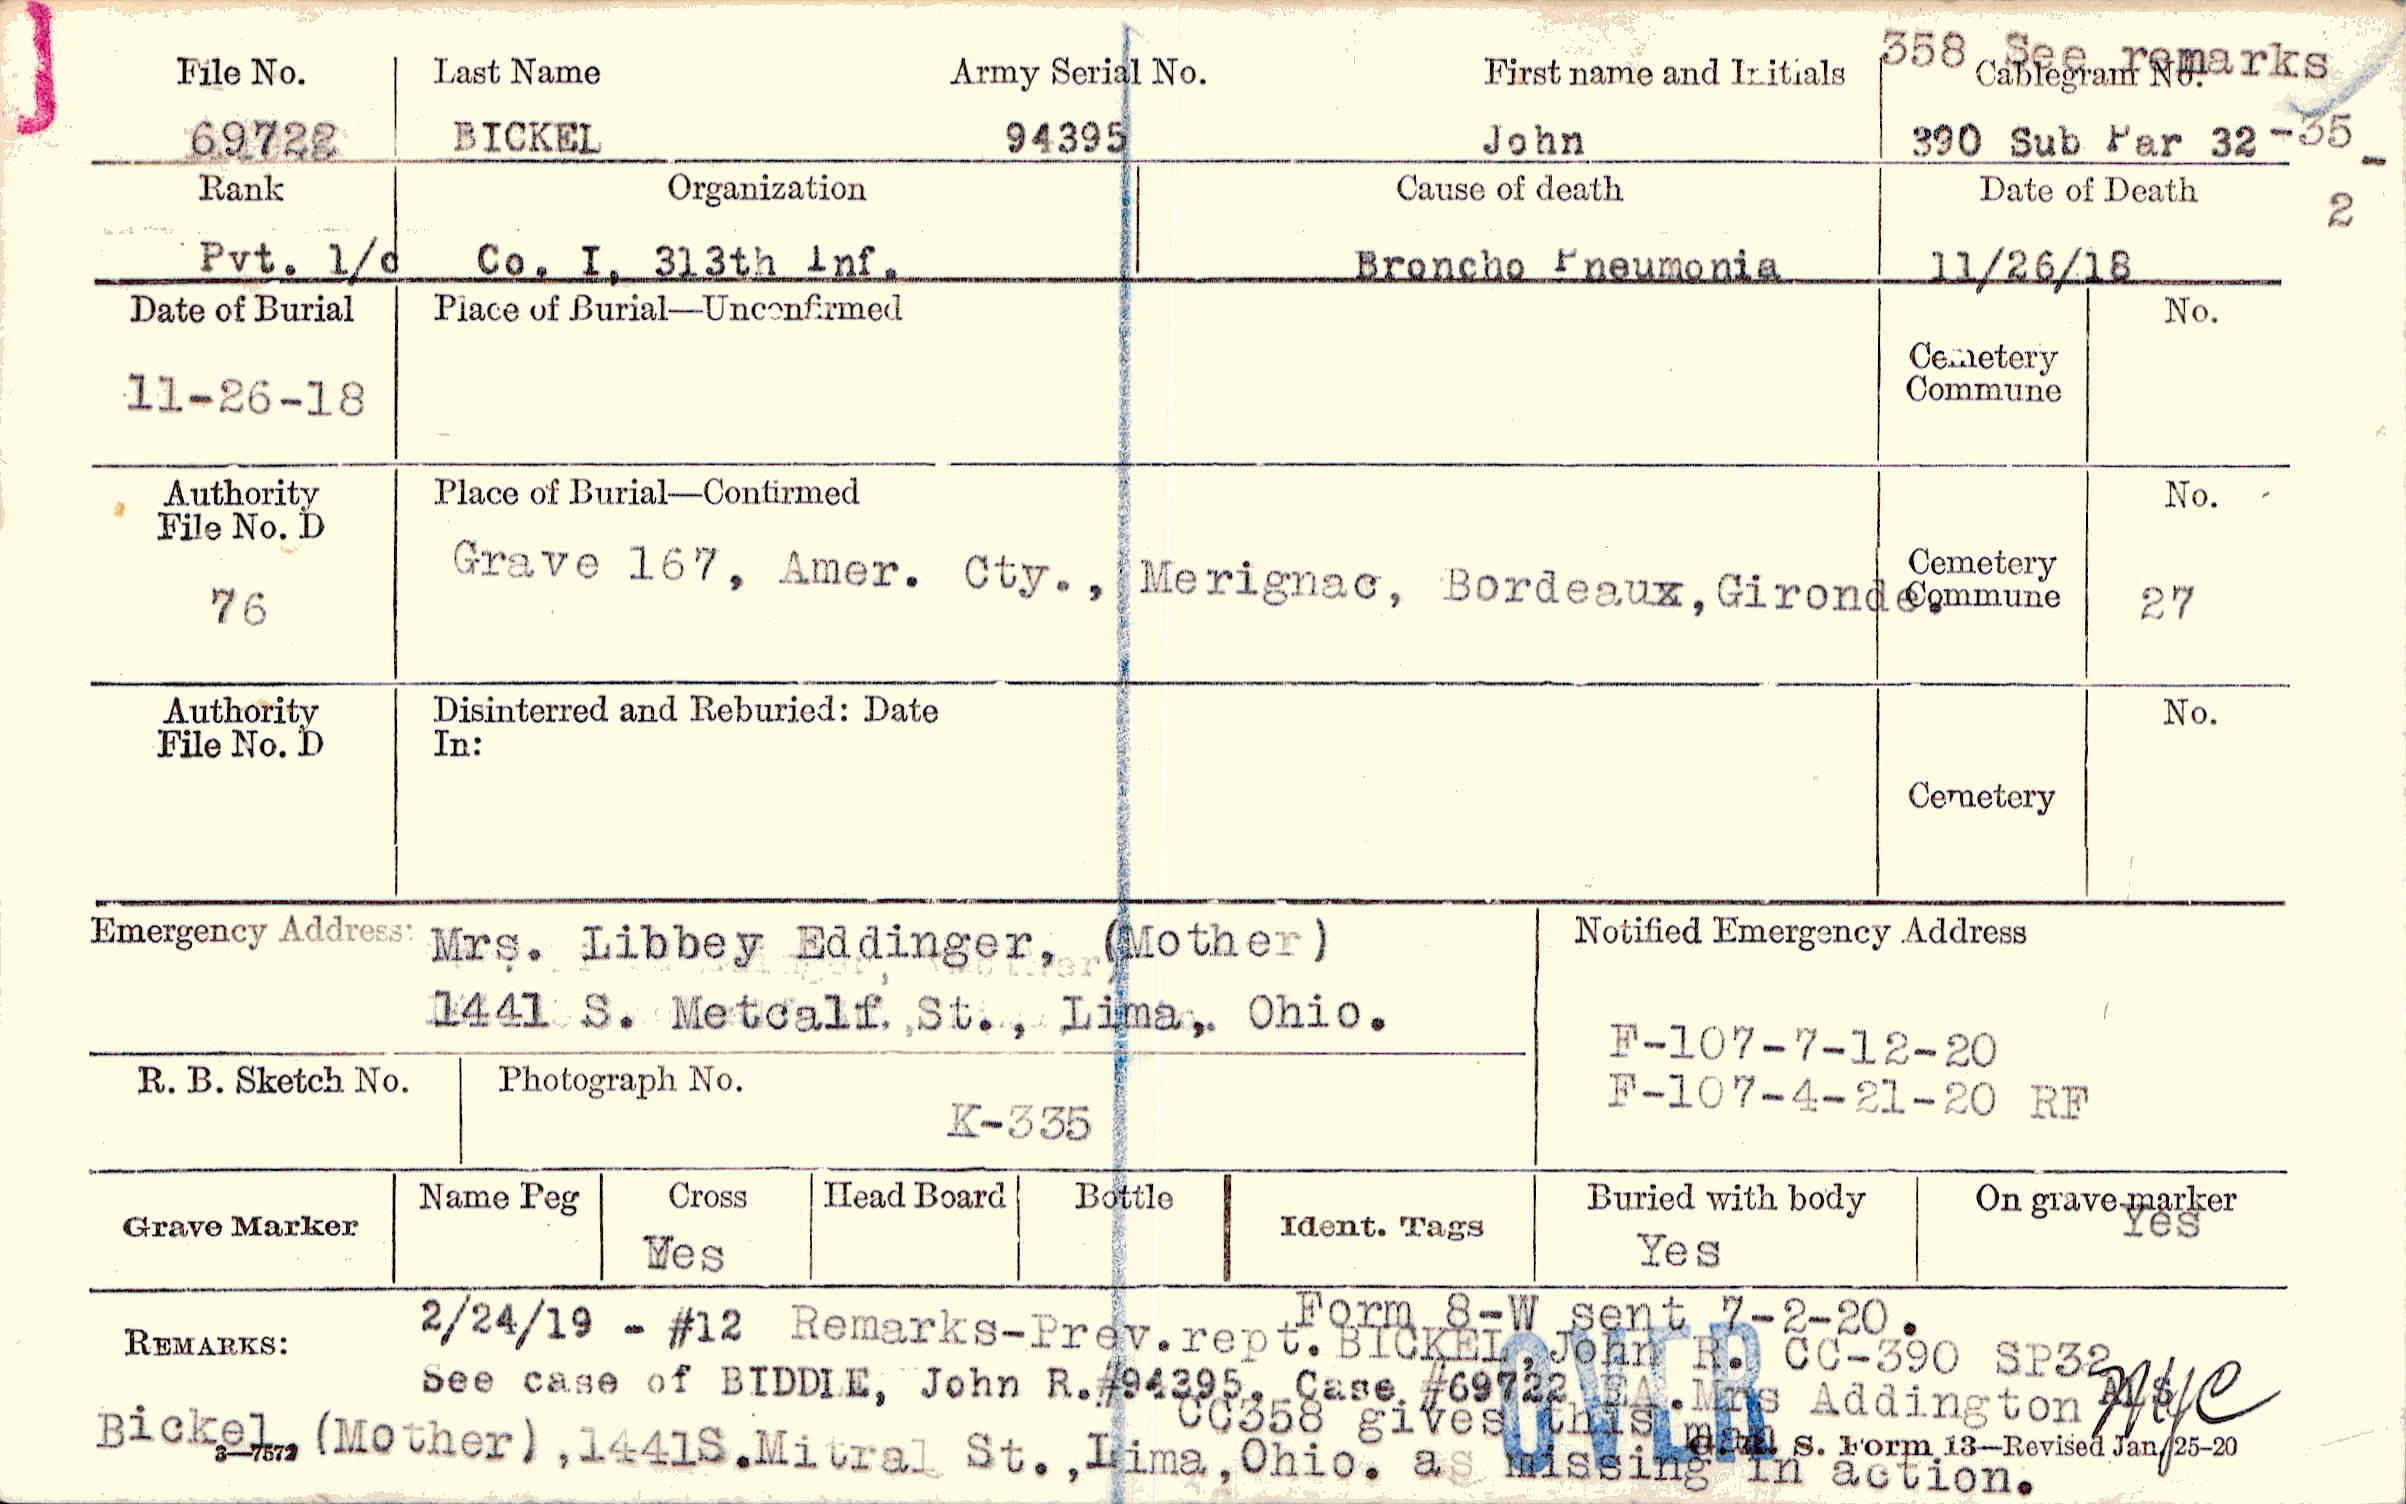 358 See remarks
File No. Last Name Army Serial No. First name and Initials Cablegram No.
69722 BICKEL 94395 John 390 Sub Par 32-35-
2
Rank Organization Cause of death Date of Death
Pvt. 1/c Co. I, 313th Inf. Broncho Pneumonia 11/26/18
Date of Burial Place of Burial—Unconfirmed No.
11-26-18 Cemetery
Commune
Authority Place of Burial—Confirmed No.
File No. D
76 Grave 167, Amer. Cty., Merignac, Bordeaux, Gironde. Cemetery
Commune 27
Authority Disinterred and Reburied: Date No.
File No. D In:
Cemetery
Emergency Address: Mrs. Libbey Eddinger, (Mother) Notified Emergency Address
1441 S. Metcalf St., Lima, Ohio.
F-107-7-12-20
F-107-4-21-20 RF
R. B. Sketch No. Photograph No.
K-335
Grave Marker Name Peg Cross Head Board Bottle Ident. Tags Buried with body On grave marker
Yes Yes Yes
Form 8-W sent 7-2-20.
REMARKS: 2/24/19 - #12 Remarks-Prev.rept. BICKEL, John R. CC-390 SP32
See case of BIDDLE, John R.#94395. Case #69722 EA.Mrs Addington
OVER
CC358 gives this man
Bickel, (Mother), 1441S. Mitral St., Lima, Ohio. as missing in action.
3—7572 G. R. S. Form 13—Revised Jan. 25-20